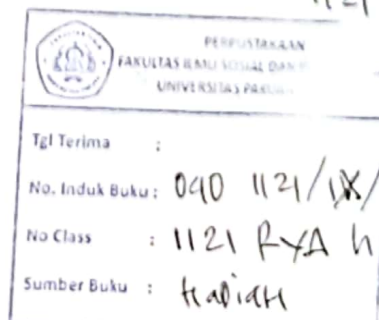 PERPUSTAKAAN
FAKULTAS ILMU SOSIAL DAN
UNIVERSITAS
Tgl Terima :
No. Induk Buku : 090 1121/IX/
No Class : 1121 RYA h
Sumber Buku : Hadiah